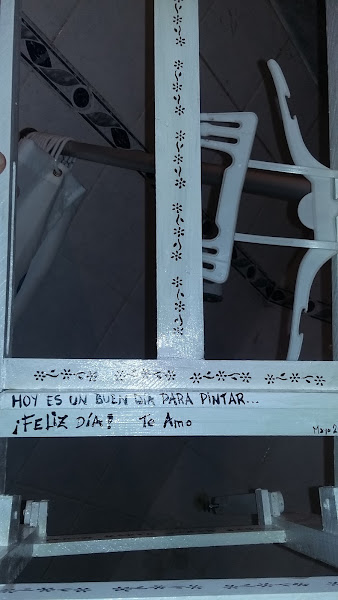 HOY ES UN BUEN DIA PARA PINTAR...
¡FELIZ DÍA! Te Amo
Mayo